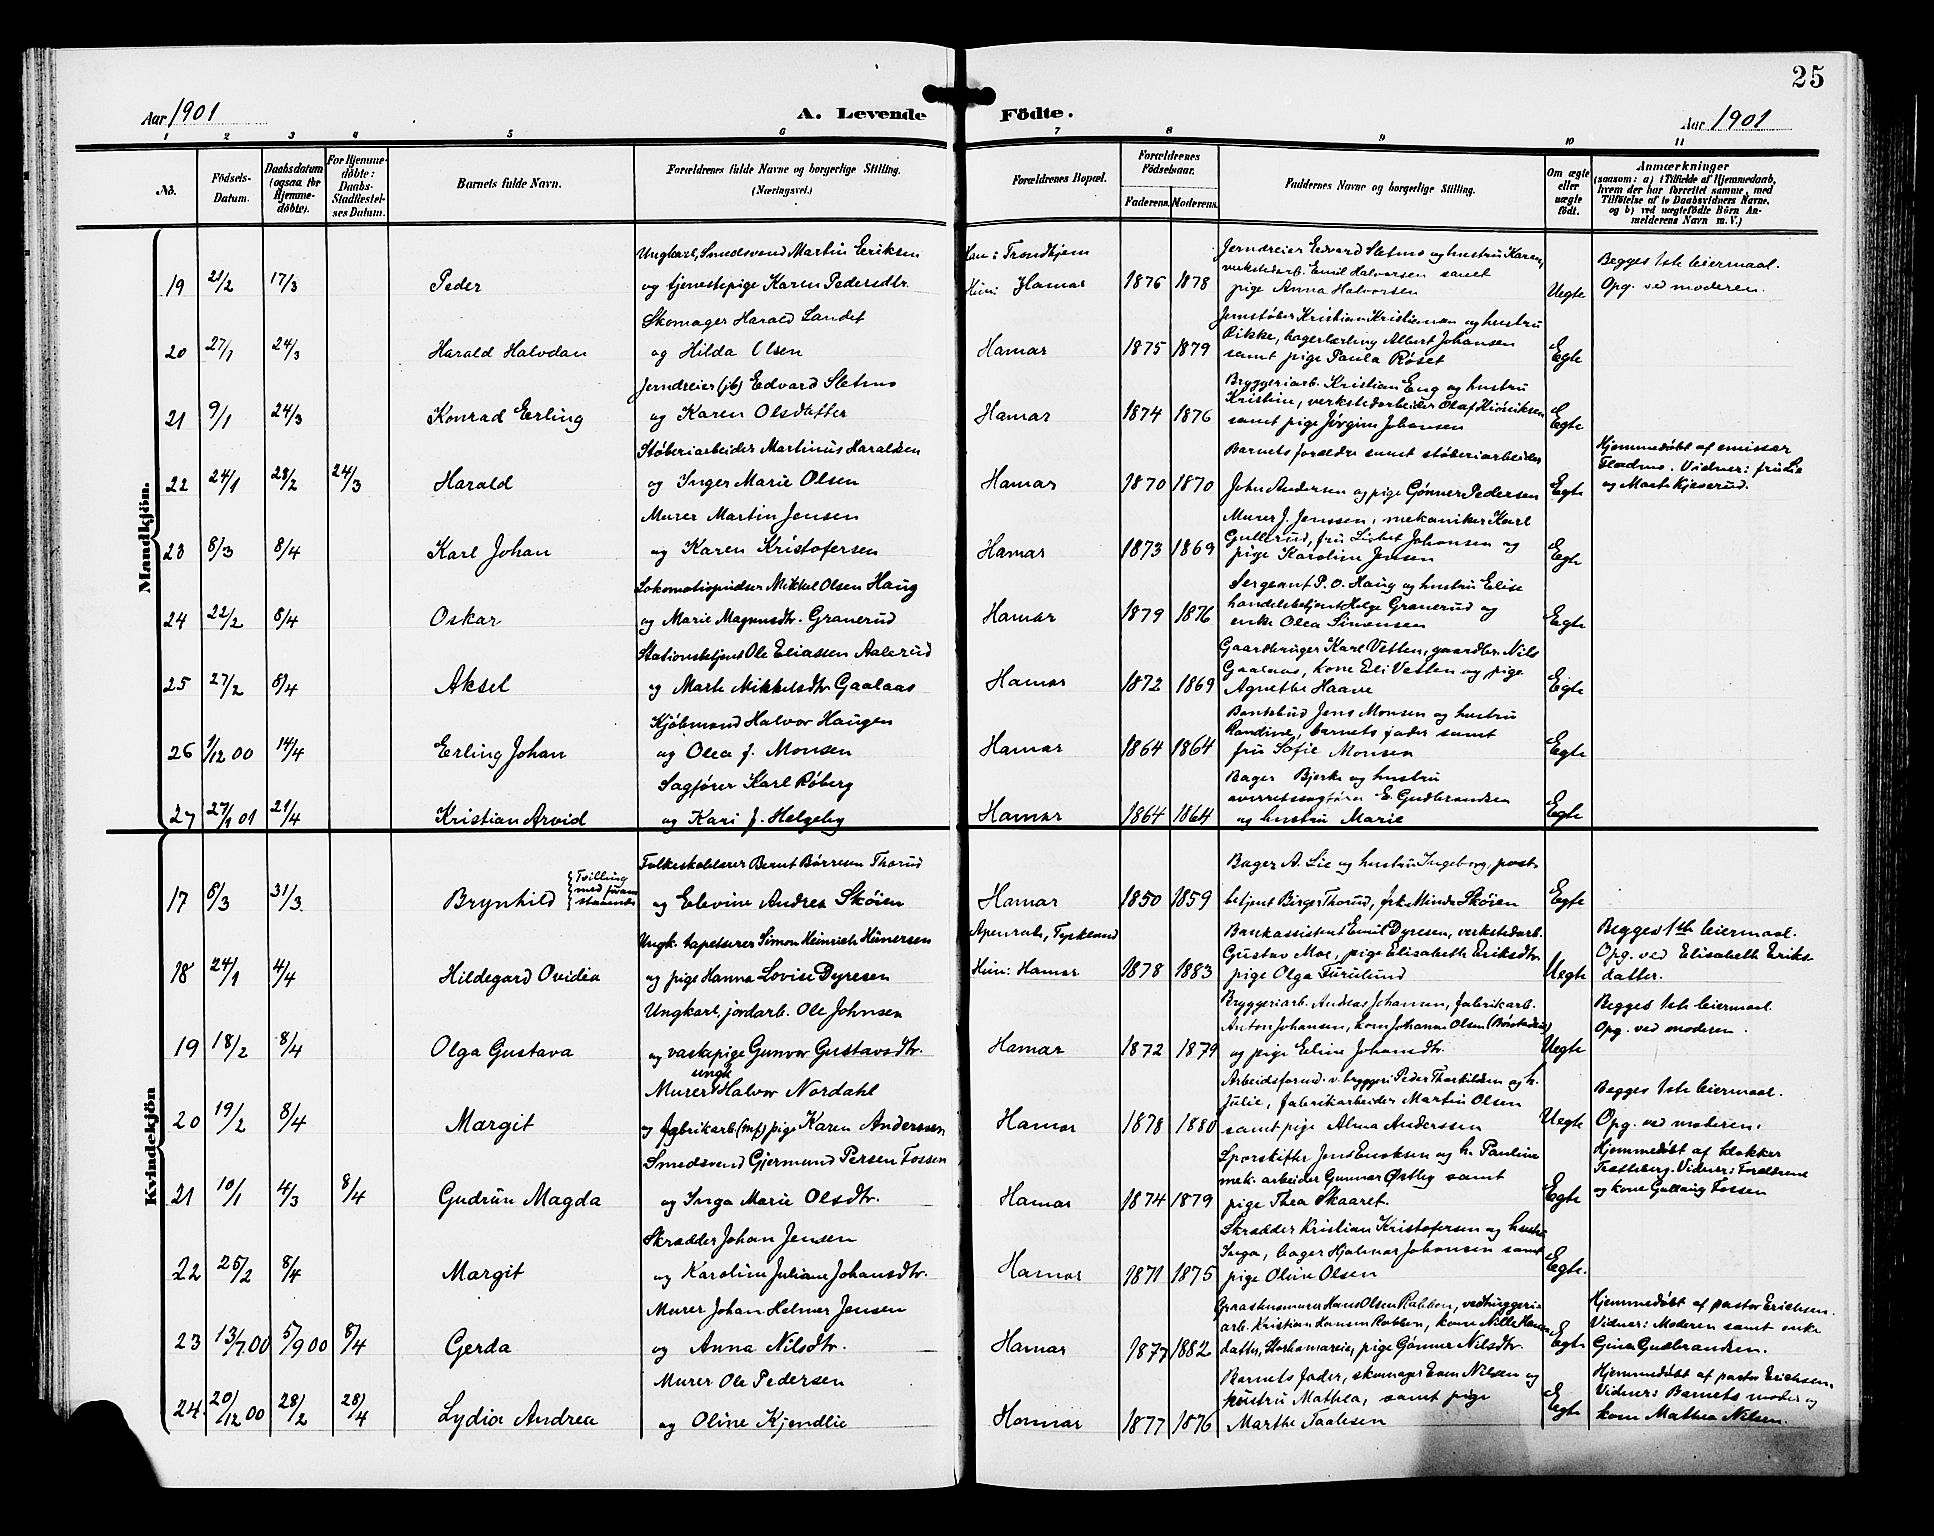 25
Aar 1901
A. Levende Födte.
Aar 1901
1 2 3 4 5 6 7 8 9 10 11
No.
Födsels-Datum.
Daabsdatum (ogsaa for Hjemme-döbte).
For Hjemme-döbte: Daabs-Stadfæstel-ses Datum.
Barnets fulde Navn.
Forældrenes fulde Navne og borgerlige Stilling. (Næringsvei.)
Forældrenes Bopæl.
Forældrenes Födselsaar.
Faderens. Moderens.
Faddernes Navne og borgerlige Stilling.
Om ægte eller uægte födt.
Anmærkninger
(saasom: a) i Tilfælde af Hjemmedaab, hvem der har forrettet samme, med Tilföielse af to Daabsvidners Navne, og b) ved uægtefödte Börn An-melderens Navn m. V.)
Mandkjön.
Ungkarl, Smedsvend Martin Eriksen
19 21/2 17/3 Peder og tjenestepige Karen Pedersdtr.
Han: Trondhjem
Hun: Hamar 1876 1878
Jerndreier Edvard Sletmo og hustru Karen,
verkstedarb. Emil Halvorsen samt
pige Anna Halvorsen
Uegte
Begges 1ste leiermaal.
Opg. ved moderen.
Skomager Harald Landet
20 27/1 24/3 Harald Halvdan og Hilda Olsen
Hamar 1875 1879
Jernstøber Kristian Kristiansen og hustru
Rikke, bagerlærling Albert Johansen
samt pige Paula Røset
Egte
Jerndreier (jb) Edvard Sletmo
21 9/1 24/3 Konrad Erling og Karen Olsdatter
Hamar 1874 1876
Bryggeriarb. Kristian Eng og hustru
Kristine, verkstedarbeider Olaf Hienriksen
samt pige Jørgine Johansen
Egte
Støberiarbeider Martinus Haraldsen
22 24/1 28/2 24/3 Harald og Inger Marie Olsen
Hamar 1870 1870
Barnets forældre samt støberiarbeider
John Andersen og pige Gønner Pedersen
Egte
Hjemmedøbt af emissær
Fladmo. Vidner: fru Lie
og Marte Kjeverud.
Murer Martin Jensen
23 8/3 8/4 Karl Johan og Karen Kristofersen
Hamar 1873 1869
Murer J. Jenssen, mekaniker Karl
Gullerud, fru Lisbet Johansen og
pige Karoline Jensen
Egte
Lokomotivpudser Mikkel Olsen Haug
24 22/2 8/4 Oskar og Marie Magnusdtr. Granerud
Hamar 1879 1876
Sergeant P. O. Haug og hustru Elise
handelsbetjent Helge Granerud og
enke Olea Simensen
Egte
Stationsbetjent Ole Eliassen Aalerud
25 27/2 8/4 Aksel og Marte Mikkelsdtr Gaalaas
Hamar 1872 1869
Gaardbruger Karl Vetten, gaardbr. Nils
Gaalaas, kone Eli Vetten og pige
Agnethe Haave
Egte
Kjøbmand Halvor Haugen
26 1/12 00 14/4 Erling Johan og Olea f. Monsen
Hamar 1864 1864
Bankbud Jens Monsen og hustru
Randine, barnets fader samt
fru Sofie Monsen
Egte
Sagfører Karl Røberg
27 27/1 01 21/4 Kristian Arvid og Kari f. Helgeby
Hamar 1864 1864
Bager Bjerke og hustru
overretssagfører E. Gudbrandsen
og hustru Marie
Egte
Kvindekjön
Folkeskolelærer Bernt Børresen Thorud
17 8/3 31/3 Brynhild
Tvilling med foran staaende
og Elevine Andrea Skøien
Hamar 1850 1859
Bager A. Lie og hustru Ingeborg, post-
betjent Birger Thorud, frk. Minda Skøien
Egte
Ungk. tapetserer Simon Heinrich Heinersen
18 24/1 4/4 Hildegard Ovidia og pige Hanna Lovise Dyresen
Apenrade, Tyskland
Hun: Hamar 1878 1883
Bankassistent Emil Dyresen, verkstedarb.
Gustav Moe, pige Elisabeth Eriksdtr.
pige Olga Furulund
Uegte
Begges 1ste leiermaal.
Opg. ved Elisabeth Eriks-
datter.
Ungkarl, jordarb. Ole Johnsen
19 18/2 8/4 Olga Gustava og vaskepige Gunvor Gustavsdtr.
Hamar 1872 1879
Bryggeriarb. Andreas Johansen, fabrikarb.
Anton Johansen, kone Johanne Olsen
og pige Eline Johansdtr.
Uegte
Begges 1ste leiermaal.
Opg. ved moderen.
Murer ungk. Halvor Nordahl
20 19/2 8/4 Margit og fabrikarb (mf) pige Karen Anderssen
Hamar 1878 1880
Arbeidsformd. v. bryggeri Peder Thorkildsen og h.
Julie, fabrikarbeider Martin Olsen
samt pige Alma Anderssen
Uegte
Begges 1ste leiermaal.
Opg. ved moderen.
Smedsvend Gjermund Persen Fossen
21 10/1 4/3 8/4 Gudrun Magda og Inga Marie Olsdtr.
Hamar 1874 1879
Sporskifter Jens Eriksen og h. Pauline
mek. arbeider Gunnar Østby samt
pige Thea Skaaret.
Egte
Hjemmedøbt af klokker
Trætteberg. Vidner: Forældrene
og kone Gullaug Fossen
Skrædder Johan Jensen
22 25/2 8/4 Margit og Karoline Juliane Johansdtr.
Hamar 1871 1875
Skrædder Kristian Kristofersen og hustru
Inga, bager Hjalmar Johansen samt
pige Oline Olsen
Egte.
Murer Johan Helmer Jensen
23 13/7 00 5/9 00 8/4 Gerda og Anna Nilsdtr.
Hamar 1877 1882
Graastensmurer Hans Olsen Rabben, vedhuggeri-
arb. Kristian Hansen Robben, kone Nille Hans-
datter, Storhamareie, pige Gønner Nilsdtr.
Egte
Hjemmedøbt af pastor Erichsen.
Vidner: Moderen samt enke
Gina Gudbrandsen.
Murer Ole Pedersen
24. 20/12 00 28/2 28/4 Lydia Andrea og Oline Kjendlie
Hamar 1877 1876
Barnets fader, skomager Even Nilsen og
hustru Mathea, samt pige
Marthe Paalsen
Egte
Hjemmedøbt af pastor Erichsen.
Vidner: Barnets moder og
kone Mathea Nilsen.